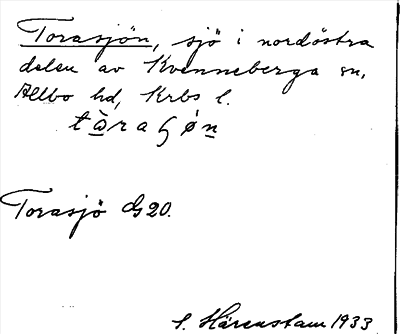 Torasjön, sjö i nordöstra
delen av Kvenneberga sn,
Allbo hd, Krbs l.
tàraʃón
Torasjö G20.
S. Härenstam 1933